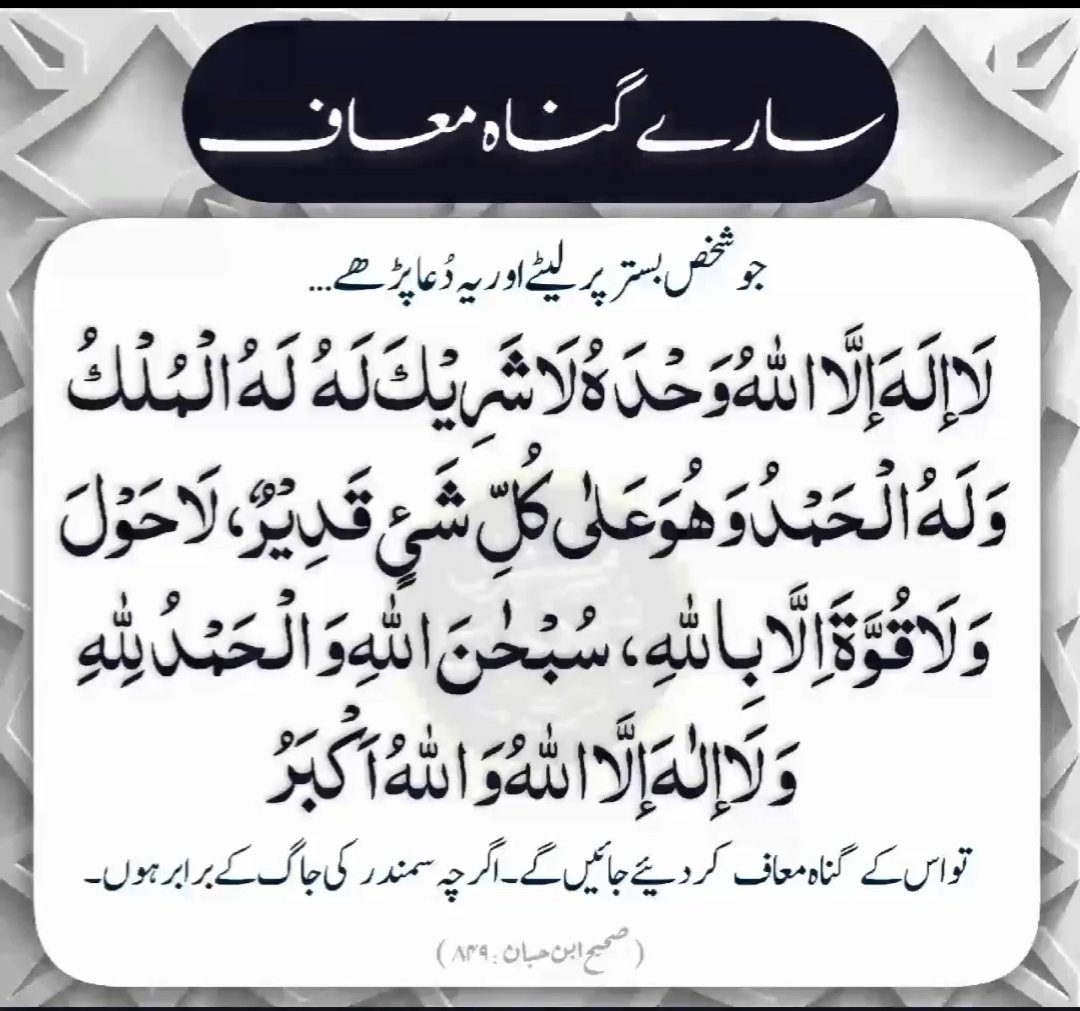 سارے گناہ معاف
جو شخص بستر پر لیٹے اور یہ دُعا پڑھے...
لَا إِلَهَ إِلَّا اللهُ وَحْدَهُ لَا شَرِيْكَ لَهُ لَهُ الْمُلْكُ
وَلَهُ الْحَمْدُ وَهُوَ عَلٰى كُلِّ شَيْءٍ قَدِيْرٌ، لَا حَوْلَ
وَلَا قُوَّةَ اِلَّا بِاللهِ، سُبْحٰنَ اللهِ وَالْحَمْدُ لِلهِ
وَلَا إِلٰهَ إِلَّا اللهُ وَاللهُ اَكْبَرُ
تو اس کے گناہ معاف کر دئیے جائیں گے۔ اگرچہ سمندر کی جاگ کے برابر ہوں۔
(صحیح ابن حبان: ۸۴۹)